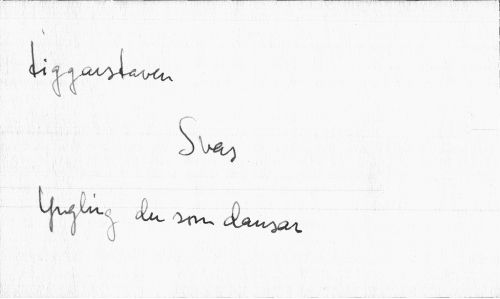 tiggarstaven
Svas
Yngling du som dansar